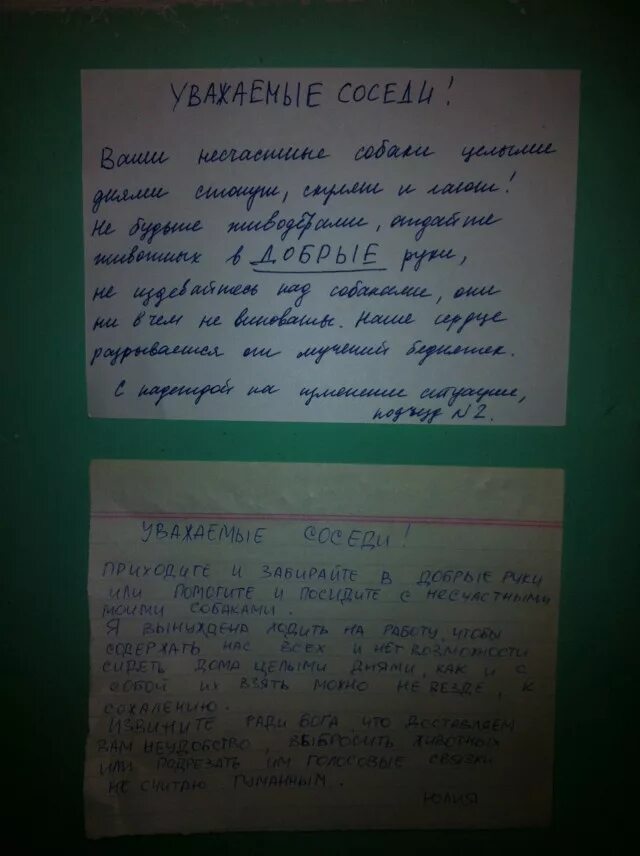 УВАЖАЕМЫЕ СОСЕДИ!
Ваши несчастные собаки целыми
днями стонут, скулят и лают!
Не будьте живодёрами, отдайте
животных в ДОБРЫЕ руки,
не издевайтесь над собаками, они
ни в чем не виноваты. Наше сердце
разрывается от мучений бедняжек.
С надеждой на изменение ситуации,
подъезд N2.
УВАЖАЕМЫЕ СОСЕДИ!
ПРИХОДИТЕ И ЗАБИРАЙТЕ В ДОБРЫЕ РУКИ
ИЛИ ПОМОГИТЕ И ПОСИДИТЕ С НЕСЧАСТНЫМИ
МОИМИ СОБАКАМИ.
Я ВЫНУЖДЕНА ХОДИТЬ НА РАБОТУ, ЧТОБЫ
СОДЕРЖАТЬ НАС ВСЕХ И НЕТ ВОЗМОЖНОСТИ
СИДЕТЬ ДОМА ЦЕЛЫМИ ДНЯМИ, КАК И С
СОБОЙ ИХ ВЗЯТЬ МОЖНО НЕ ВЕЗДЕ, К
СОЖАЛЕНИЮ.
ИЗВИНИТЕ РАДИ БОГА, ЧТО ДОСТАВЛЯЕМ
ВАМ НЕУДОБСТВО, ВЫБРОСИТЬ ЖИВОТНЫХ
ИЛИ ПОДРЕЗАТЬ ИМ ГОЛОСОВЫЕ СВЯЗКИ
НЕ СЧИТАЮ ГУМАННЫМ.
ЮЛИЯ